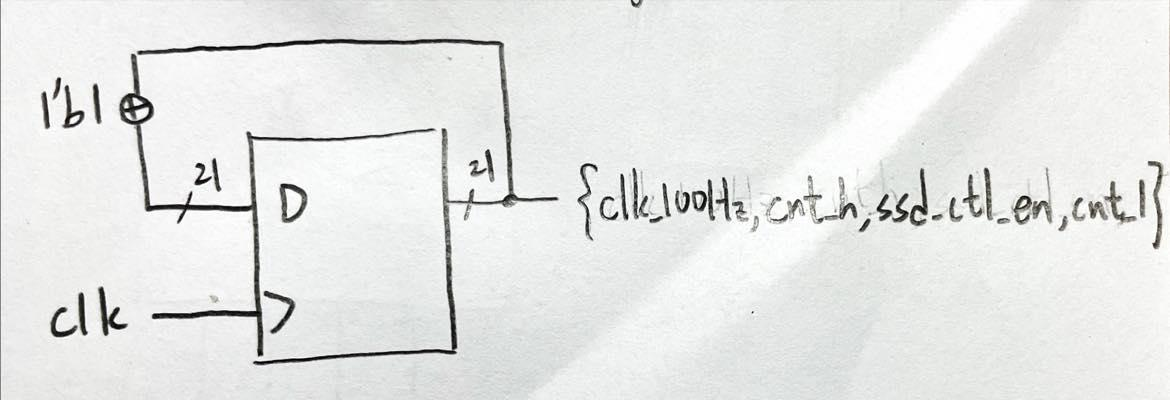 1'b1
21
21
D
{clk_100Hz, cnt_h, ssd_ctl_en, cnt_l}
clk